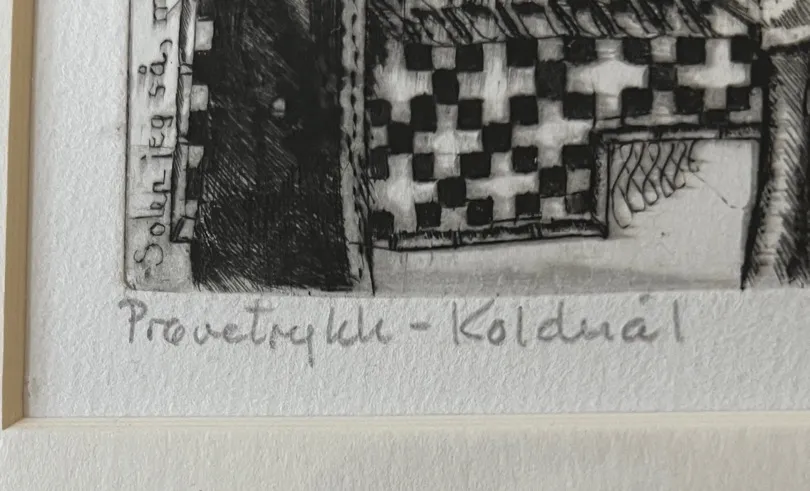 Solen jeg så, m
Prøvetrykk - Koldnål